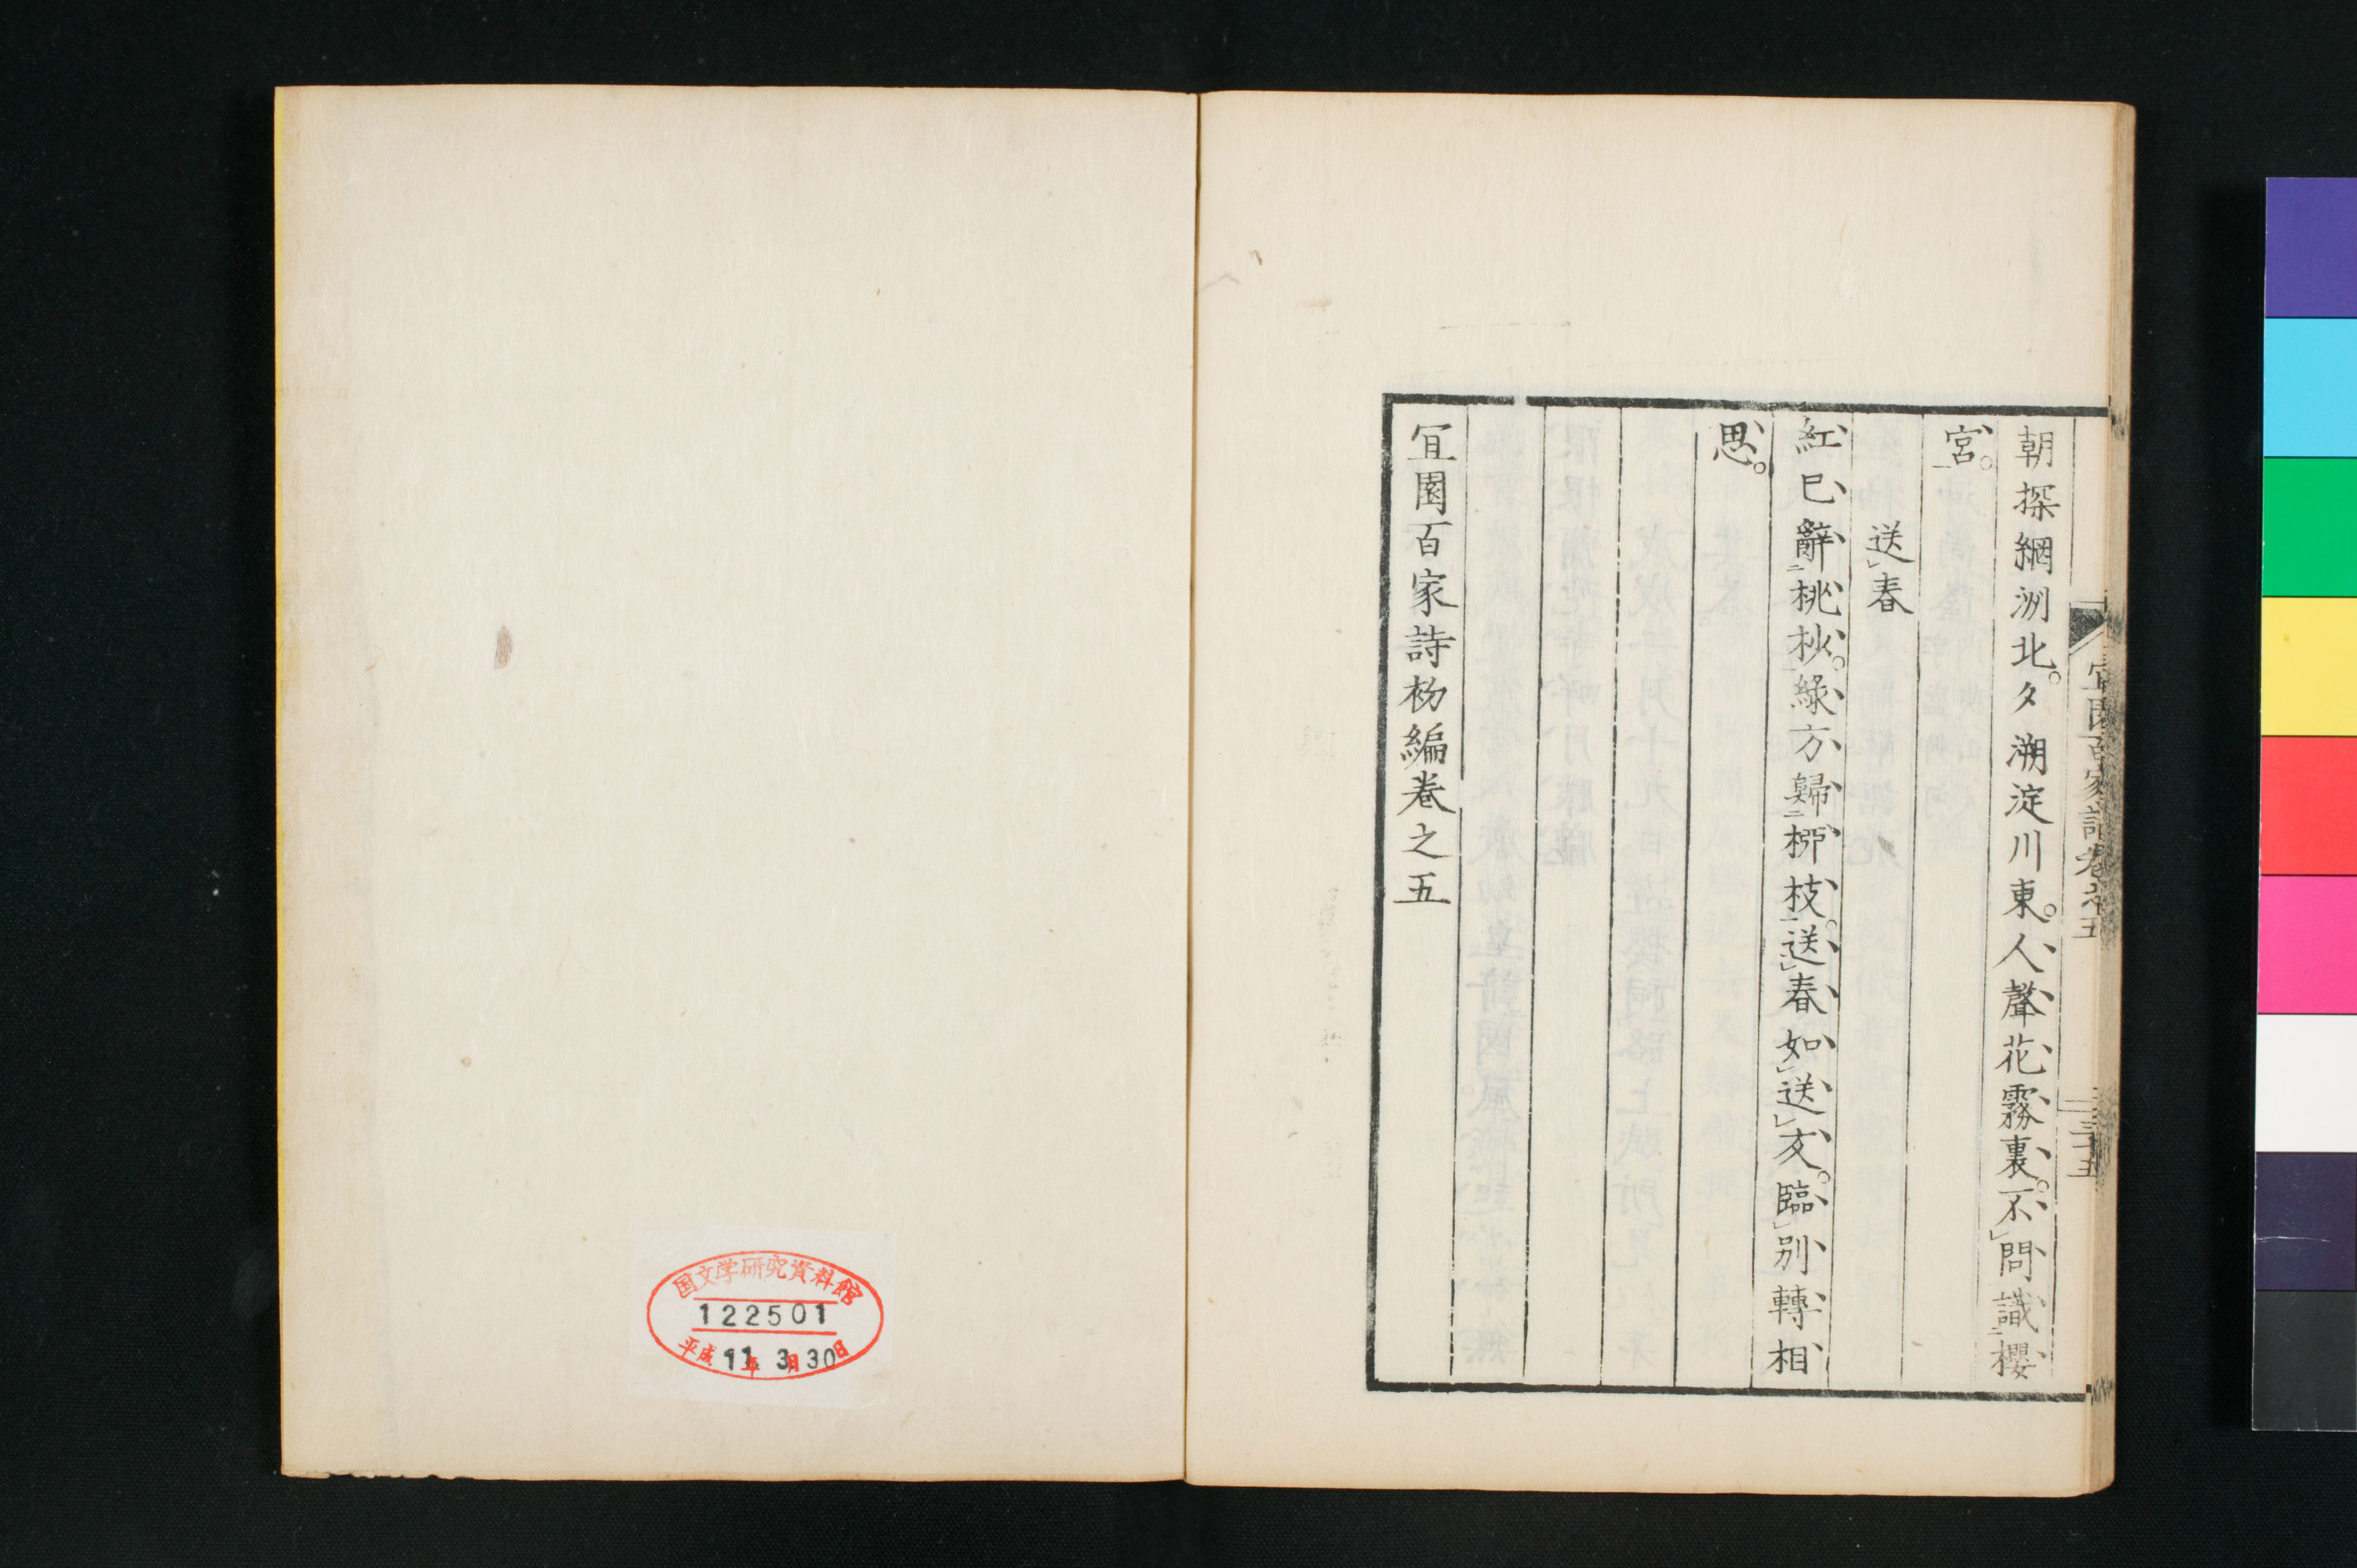 宜園百家詩卷之五
三十五
朝探網洲北。夕溯淀川東。人聲花霧裏。不問識櫻
宮。
送春
紅已辭桃杪。綠方歸柳枝。送春如送友。臨別轉相
思。
宜園百家詩初編卷之五
国文学研究資料館
122501
平成11年3月30日